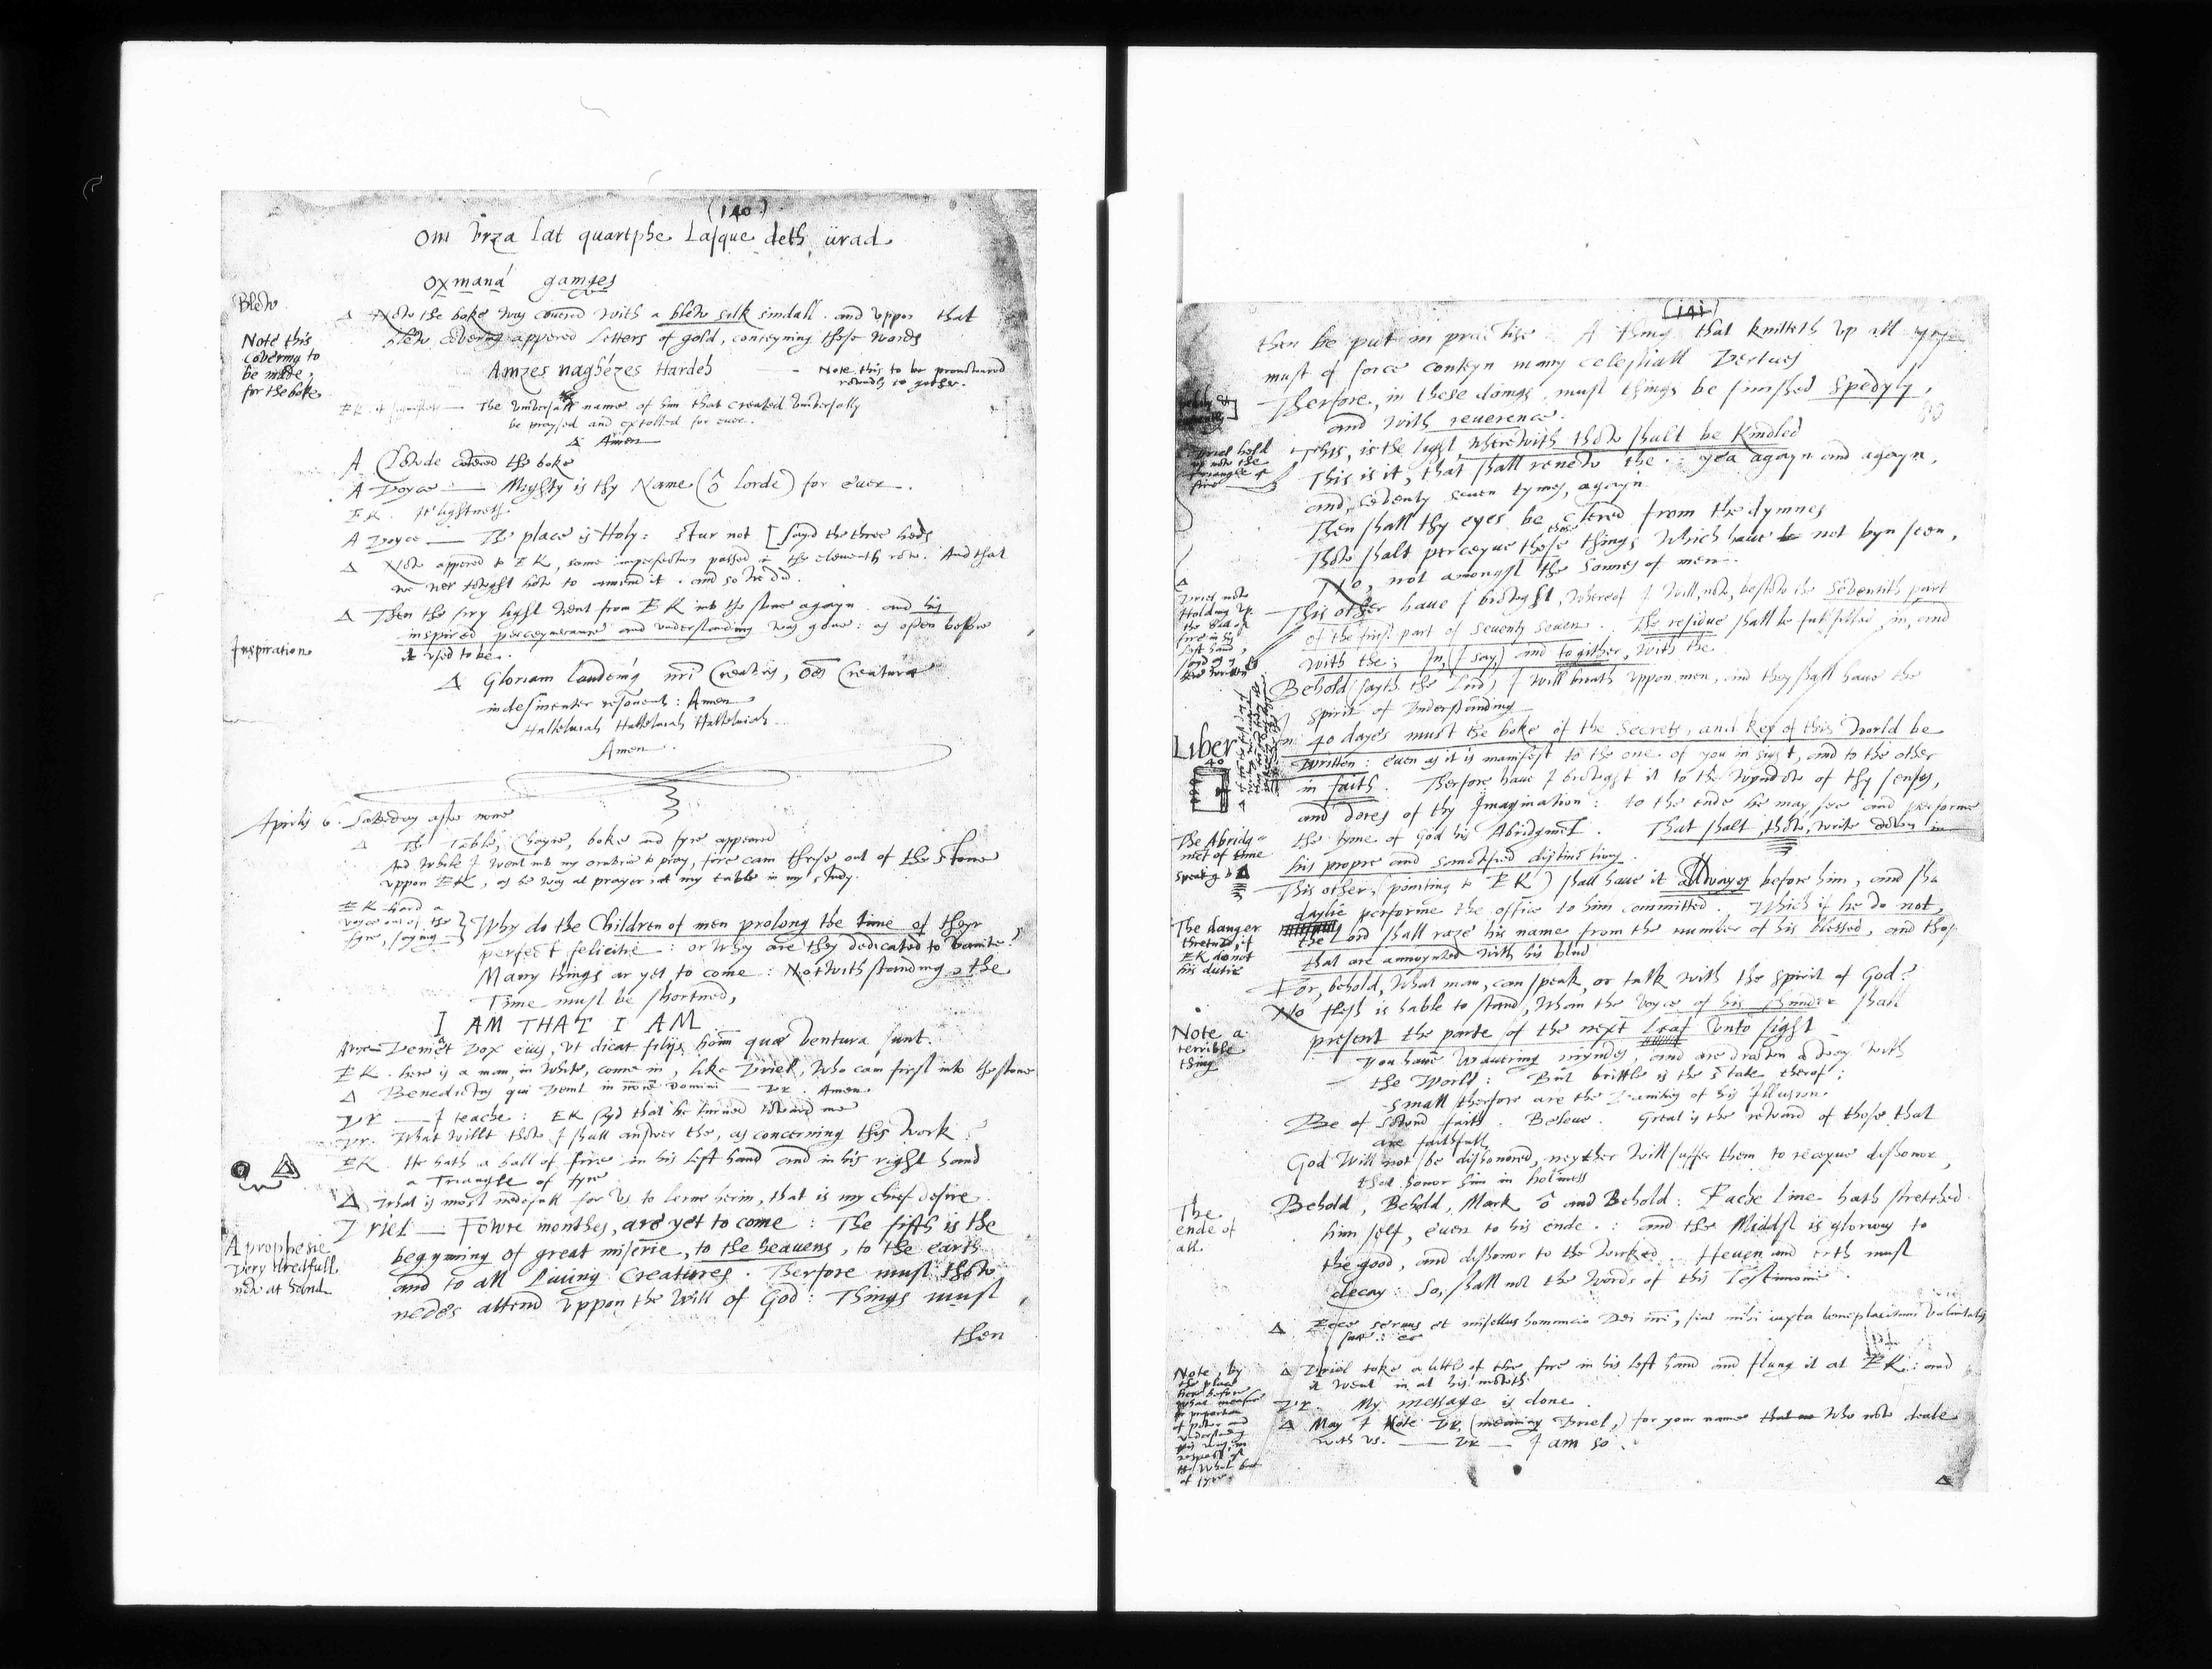 (140)
Om vrza lat quartphe Lasque deth ürad
oxmaná gamges
Blew
Δ Now the boke was covered with a blew silk sindall. and uppon that
blew covering appered Letters of gold, conteyning these words
Note this
covering to
be made,
for the boke
Amzes naghézes Hardeh — Note, this to be pronownced
rowndly to gither.
EK. it signifieth — The universall name of him that created universally
be praysed and extolled for ever.
Δ Amen
A Clowde covered the boke
A Voyce — Mighty is thy Name (ô lorde) for ever.
EK. It lightneth.
A Voyce — The place is Holy: stur not [sayd the three heds
Δ Now appered to EK, some imperfection passed in the eleventh row. And that
we wer towght how to amend it. and so we did.
Δ Then the fyry light went from EK into the stone agayn. and his
inspired perceyverance and understanding was gone: as often before
Inspiration
it used to be.
Δ Gloriam laudemq nri Creatoris, oes Creaturæ
indesinenter resonent: Amen
Halleluiah Halleluiah Halleluiah
Amen.
Aprilis 6. Saterday after none
Δ The Table, Chayre, boke and fyre appeared
And while I went into my oratorie to pray, fyre cam thrise out of the stone
uppon EK, as he was at prayer, at my table in my study.
EK hard a
voyce out of the
fyre, saying
Why do the Children of men prolong the time of theyr
perfect felicitie: or why are they dedicated to vanitie?
Many things ar yet to come: Notwithstanding, the
Time must be shortned,
I AM THAT I AM
Δ Veniet vox eius, ut dicat filijs hom quæ ventura sunt.
EK. here is a man, in white, come in, like Uriel, who cam first into the stone
Δ Benedictus qui venit in noie Domini — Ur. Amen.
Ur — I teache: EK sayd that he turned toward me
Ur. What willt thow I shall answer the, as concerning this work?
EK. He hath a ball of fire in his left hand and in his right hand
a Triangle of fyre
Δ What is most nedefull for us to lerne herin, that is my chief desire.
Uriel — Fowre monthes, are yet to come: The fifth is the
begynning of great miserie, to the heavens, to the earth
A prophesie
very dredfull
now at hand
and to all Living Creatures. Therfore must thow
nedes attend uppon the will of God: Things must
then
(141)
then be put in practise. A thing that knitteth up all
must of force conteyn many celestiall vertues
Therfore, in these doings, must things be finished spedyly,
and with reverence.
This, is the light, wherewith thow shalt be kindled
Uriel held
up now the
triangle of
fire
This is it, that shall renew the: yea agayn and agayn,
and, seventy seven tymes, agayn
Then shall thy eyes be clered from the dymnes
Thow shalt perceyve those things, which have not byn seen,
No, not amongst the Sonnes of men.
Δ
Uriel now
Holding up
the Ball of
fire in his
left hand,
This other have I browght, whereof I will, now, bestow the seventith part
of the first part of seventy seven. The residue shall be fulfilled, in, and
with the; In, (I say,) and togither, with the
Behold (sayth the Lord) I will breath uppon men, and they shall have the
spirit of Understanding
Liber
40
In 40 dayes must the boke of the Secrets, and key of this World be
Written: even as it is manifest to the one of you in sight, and to the other
in faith. Therfore have I browght it to the wyndow of thy senses,
and dores of thy Imagination: to the ende he may see and performe
The Abridg=
met of time
speaking to Δ
the tyme of God his Abridgmet. That shalt, thow, write down in
his propre and sanctified distinctions.
This other, (pointing to EK) shall have it Allwayes before him, and sha
daylie performe the office to him committed. Which if he do not,
The danger
thretned, if
EK do not
his dutie
the Lord shall raze his name from the number of his blessed, and those
that are annoynted with his blud
For, behold, what man, can speak, or talk with the spirit of God?
No flesh is hable to stand, whan the voyce of his Thunder shall
Note a
terrible
thing
present the parte of the next Leaf unto sight
You have wavering myndes, and are drawen away with
the World: But brittle is the state therof:
Small therfore are the Vanities of his Illusion.
Be of sownd faith. Beleve. Great is the reward of those that
are faithfull
God will not be dishonored, neyther will suffer them to receyve dishonor,
that honor him in holiness
The
ende of
all.
Behold, Behold, Mark ô and Behold: Eache line hath stretched
him self, even to his ende: and the Middst is glorious to
the good, and dishonor to the wicked. Heven and erth must
decay: So, shall not the words of this Testimonie.
Δ Ecce servus et misellus homuncio Dei nri, fiat mihi iuxta beneplacitum voluntatis
suæ: &c
Note, by
the place
here before
what measure
or proportion
of power and
understanding
this was, in
respect of
the whole ball
of fyre
Δ Uriel toke a little of the fire in his left hand and flung it at EK: and
it went in at his mowth.
Ur. My message is done.
Δ May I Note Ur, (meaning Uriel,) for your name who now deale
with us. — Ur — I am so.
Δ